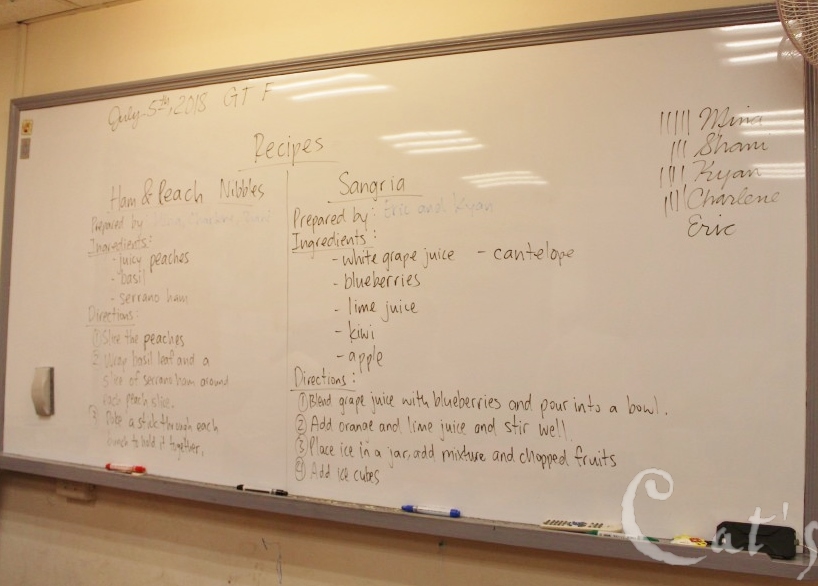 July 5th, 2018 GT F
Recipes
Ham & Peach Nibbles
Prepared by:
Ingredients:
- juicy peaches
- basil
- serrano ham
Directions:
① Slice the peaches
② Wrap basil leaf and a
slice of serrano ham around
each peach slice.
③ Poke a stick through each
bunch to hold it together.
Sangria
Prepared by: Eric and Kyan
Ingredients:
- white grape juice - cantelope
- blueberries
- lime juice
- kiwi
- apple
Directions:
① Blend grape juice with blueberries and pour into a bowl.
② Add orange and lime juice and stir well.
③ Place ice in a jar, add mixture and chopped fruits
④ Add ice cubes
||||| Mina
||| Shani
|||| Kyan
|||| Charlene
Eric
Cat's